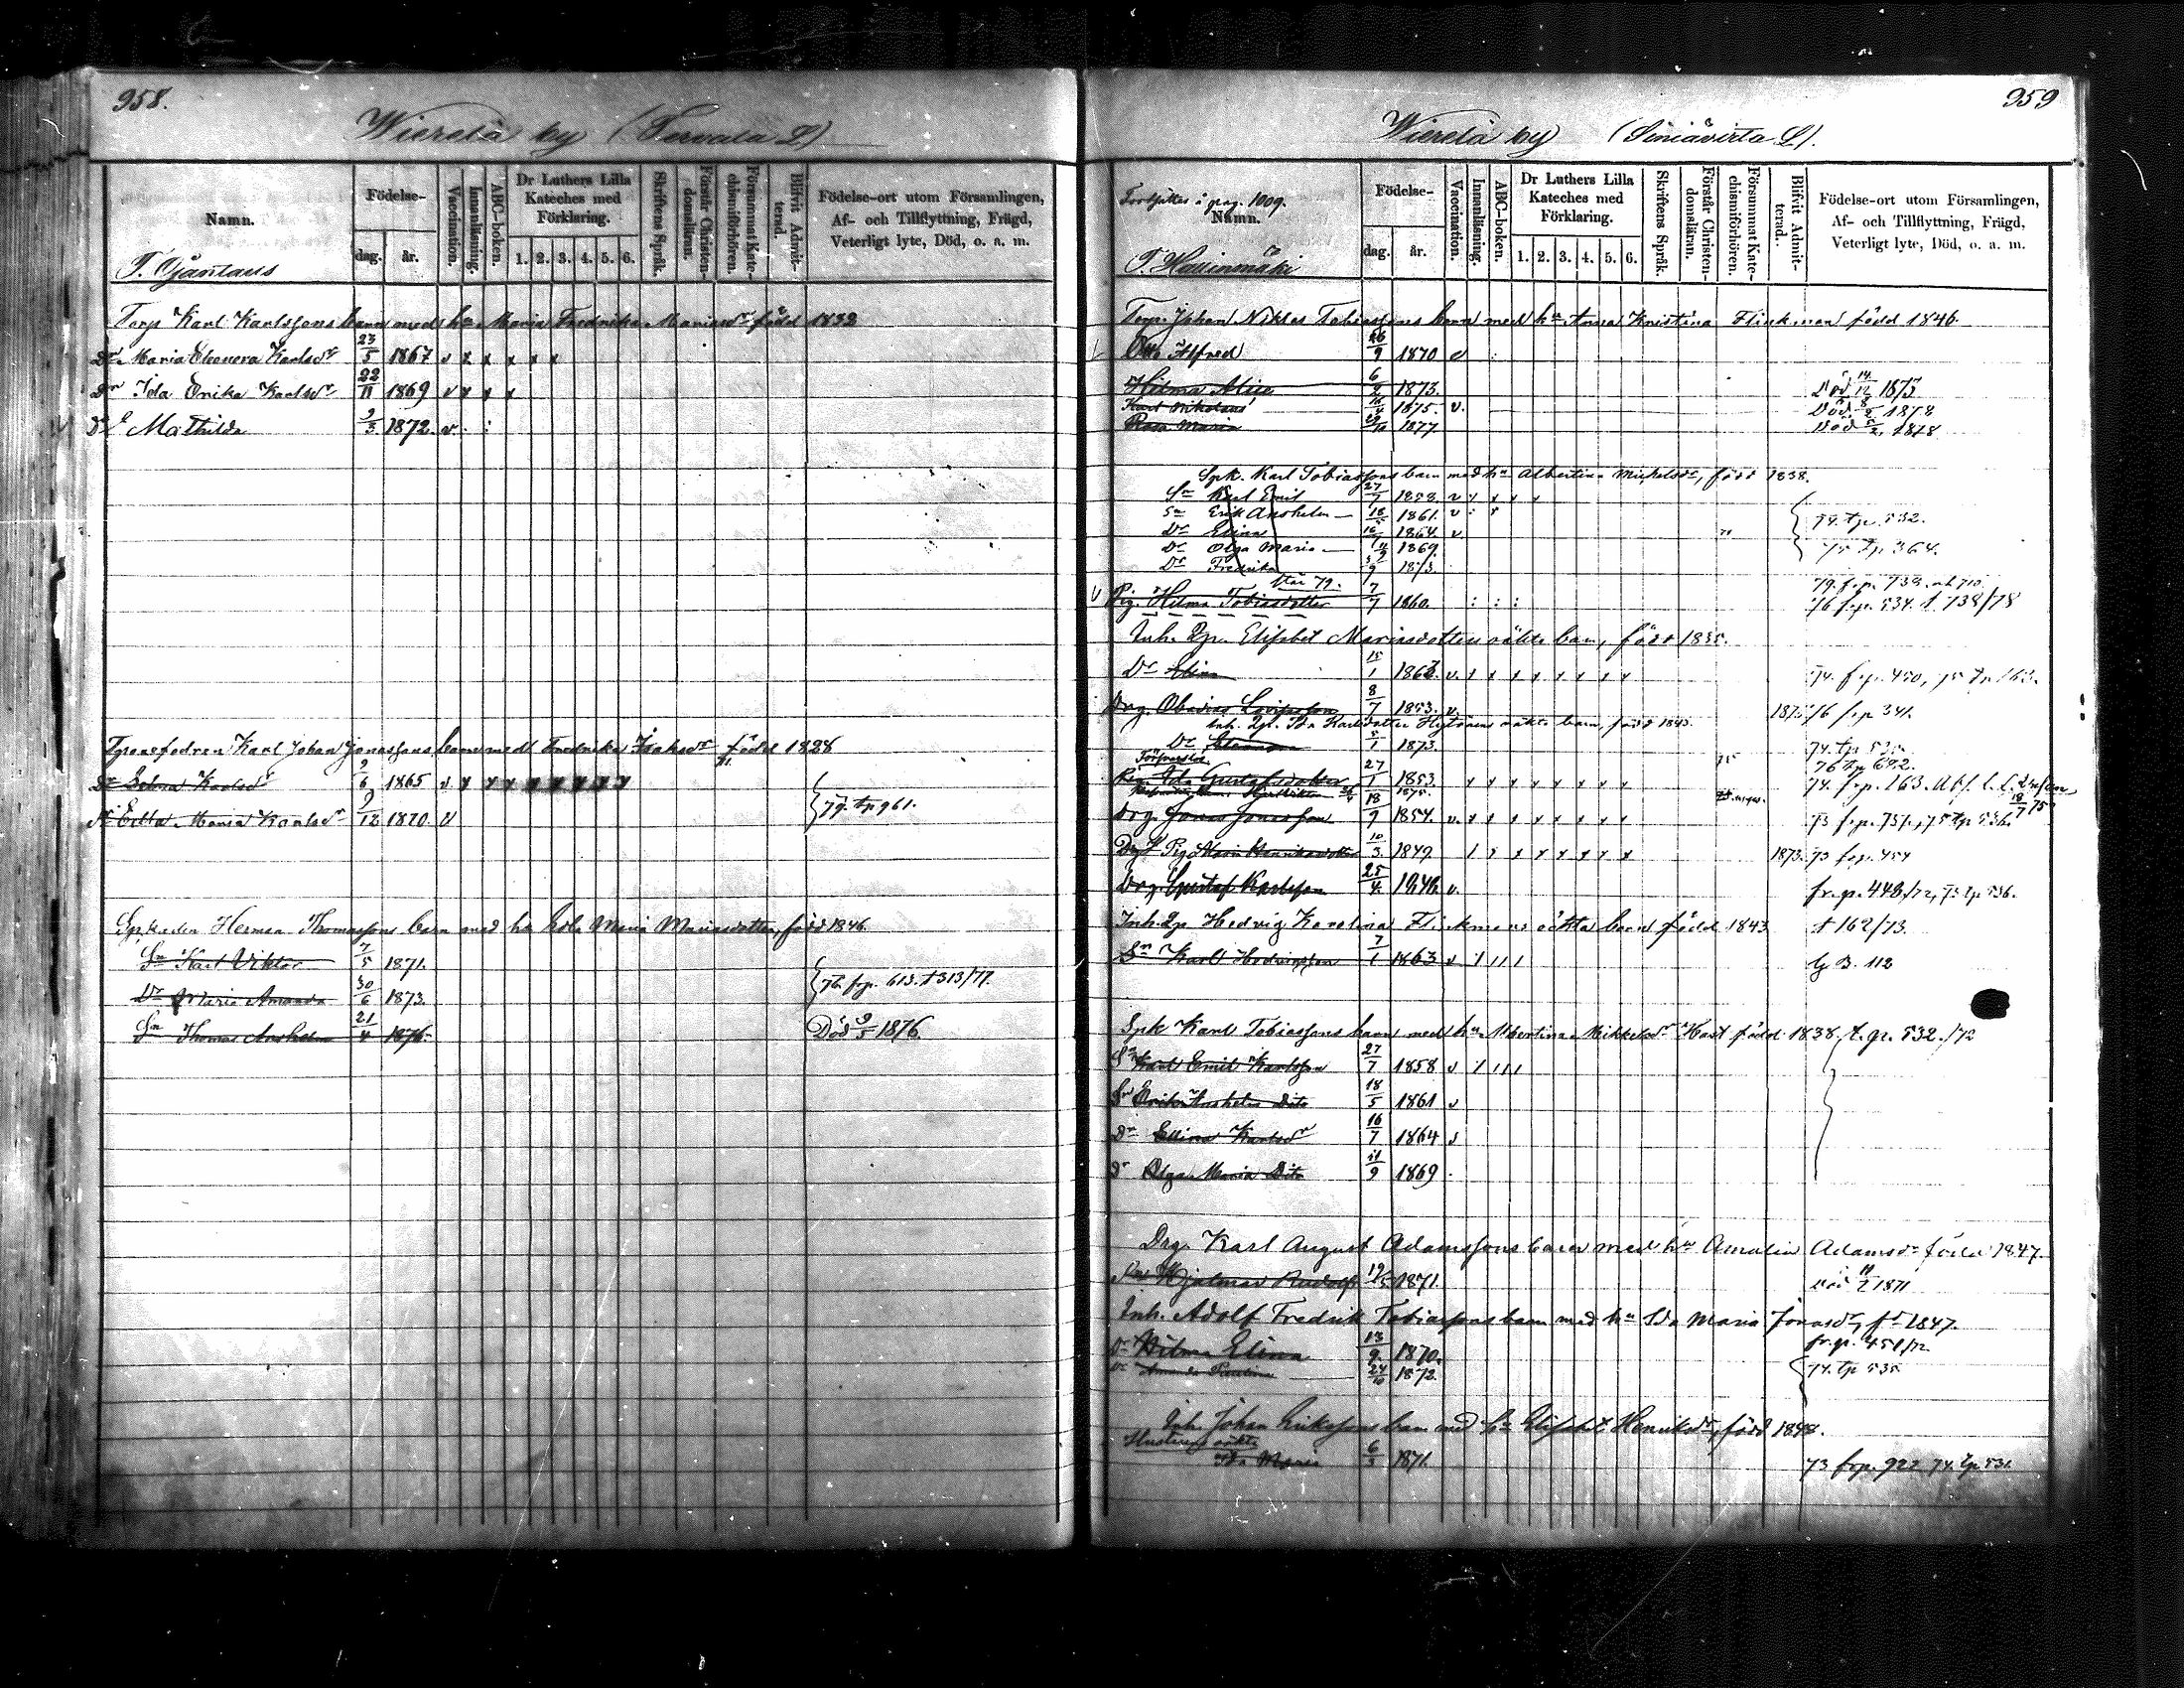 958.
Wierelä by (Servala L)
Namn.
Födelse-
dag. år.
Vaccination.
Innanläsning.
ABC-boken.
Dr Luthers Lilla Kateches med Förklaring.
1. 2. 3. 4. 5. 6.
Skriftens Språk.
Förstår Christendomsläran.
Försummat Katechismiförhören.
Blifvit Admitterad.
Födelse-ort utom Församlingen,
Af- och Tillflyttning, Frägd,
Veterligt lyte, Död, o. a. m.
T. Ojantaus
Torp Karl Karlssons barn med hu Maria Fredrika Mariædr född 1832
Dr Maria Eleonora Karlsdr 23/5 1867 v x x x x x
Dr Ida Erika Karlsdr 22/11 1869 v x x x
Dr Mathilda 9/3 1872. v
Karl Johan Jonassons barn med Fredrika Isaksdr född 1828
Dr Selma Karlsdr 9/6 1865 v x x x x x x x x
Dr Edla Maria Karlsdr 9/12 1870 v
79. tp 961.
Herman Thomassons barn med hu Edla Maria Mariasdotter, född 1846.
Sn Karl Viktor 7/5 1871.
Dr Maria Amanda 30/6 1873.
76. frp. 613. t 313/77.
Sn Thomas Anshelm 21/4 1876.
Död 9/5 1876.
959
Wierelä by (Siniävirta L).
Fortsättes å pag. 1009.
Namn.
Födelse-
dag. år.
Vaccination.
Innanläsning.
ABC-boken.
Dr Luthers Lilla Kateches med Förklaring.
1. 2. 3. 4. 5. 6.
Skriftens Språk.
Förstår Christendomsläran.
Försummat Katechismiförhören.
Blifvit Admitterad.
Födelse-ort utom Församlingen,
Af- och Tillflyttning, Frägd,
Veterligt lyte, Död, o. a. m.
T. Hallinmäki
Torp. Johan Niklas Tobiassons barn med hu Anna Kristina Flinkman född 1846
Otto Alfred 26/9 1870 v
Hilma Alice 6/2 1873. Död 14/12 1875
Karl Nikolaus 1875. v. Död 8/2 1878
Rosa Maria 1877 Död 5/2 1878
Spk. Karl Tobiassons barn med hu Albertina Mickelsdr, född 1838.
Sn Karl Emil 27/7 1858. v x x x x
Sn Erik Anshelm 18/5 1861. v
Dr Elina 16/7 1864. v
Dr Olga Maria 11/9 1869.
Dr Fredrika 1873.
74. tp. 532.
75 tp 364.
Pig. Hilma Tobiasdotter 7/7 1860.
76 frp. 534. t 738/78
Inh. Qp. Elisabet Mariasdotters oäkta barn, född 1835.
Dr Alina 15/1 1862. v. x x x x x x x x
74. frp. 450, 75 tp 163.
Drg. Obadias Lovisasson 8/7 1853. v. 1875 76 frp 341.
Inh. Qp. Ida Karlsdotter oäkta barn, född 1843.
Dr 5/1 1873. 74. tp. 535
76 tp 692.
Pig. Ida Gustafsdotter 27/1 1853. x x x x x x x x
74. frp. 163.
Drg. Jonas Jonasson 18/9 1854. v. x x x x x x x x
73 frp. 737, 75 tp 536.
Pig. Maria Henriksdotter 10/3 1849. x x x x x x x x 1873. 73 frp. 454
Drg. Gustaf Karlsson 25/4 1846 v. fr. p. 448/72, 73 tp 536.
Inh. Qp Hedvig Karolina Flinkmans oäkta barn född 1843 t 162/73.
Sn Karl Hedvigsson 7/1 1863 v
Lg B. 112
Spk Karl Tobiassons barn med hu Albertina Mikkelsdr Hast född 1838, t. p. 532./72
Sn Karl Emil Karlsson 27/7 1858 v
Sn Erik Anshelm Dito 18/5 1861 v
Dr Elina Karlsdr 16/7 1864 v
Dr Olga Maria Dito 11/9 1869
Drg. Karl August Adamssons barn med hu Amalia Adamsdr född 1847.
Sn Hjalmar Rudolf 19/5 1871. Död 11/7 1871
Inh. Adolf Fredrik Tobiassons barn med hu Ida Maria Jonasdr, fd 1847.
fr. p. 451/72
Dr Hilma Elina 13/9 1870.
Dr Amanda Paulina 24/10 1872.
74. tp 535
Inh. Johan Erikssons barn med hu Elisabet Henriksdr, född 1848.
Hustruns oäkta
Ida Maria 6/3 1871.
73 frp. 922 74. tp. 531.